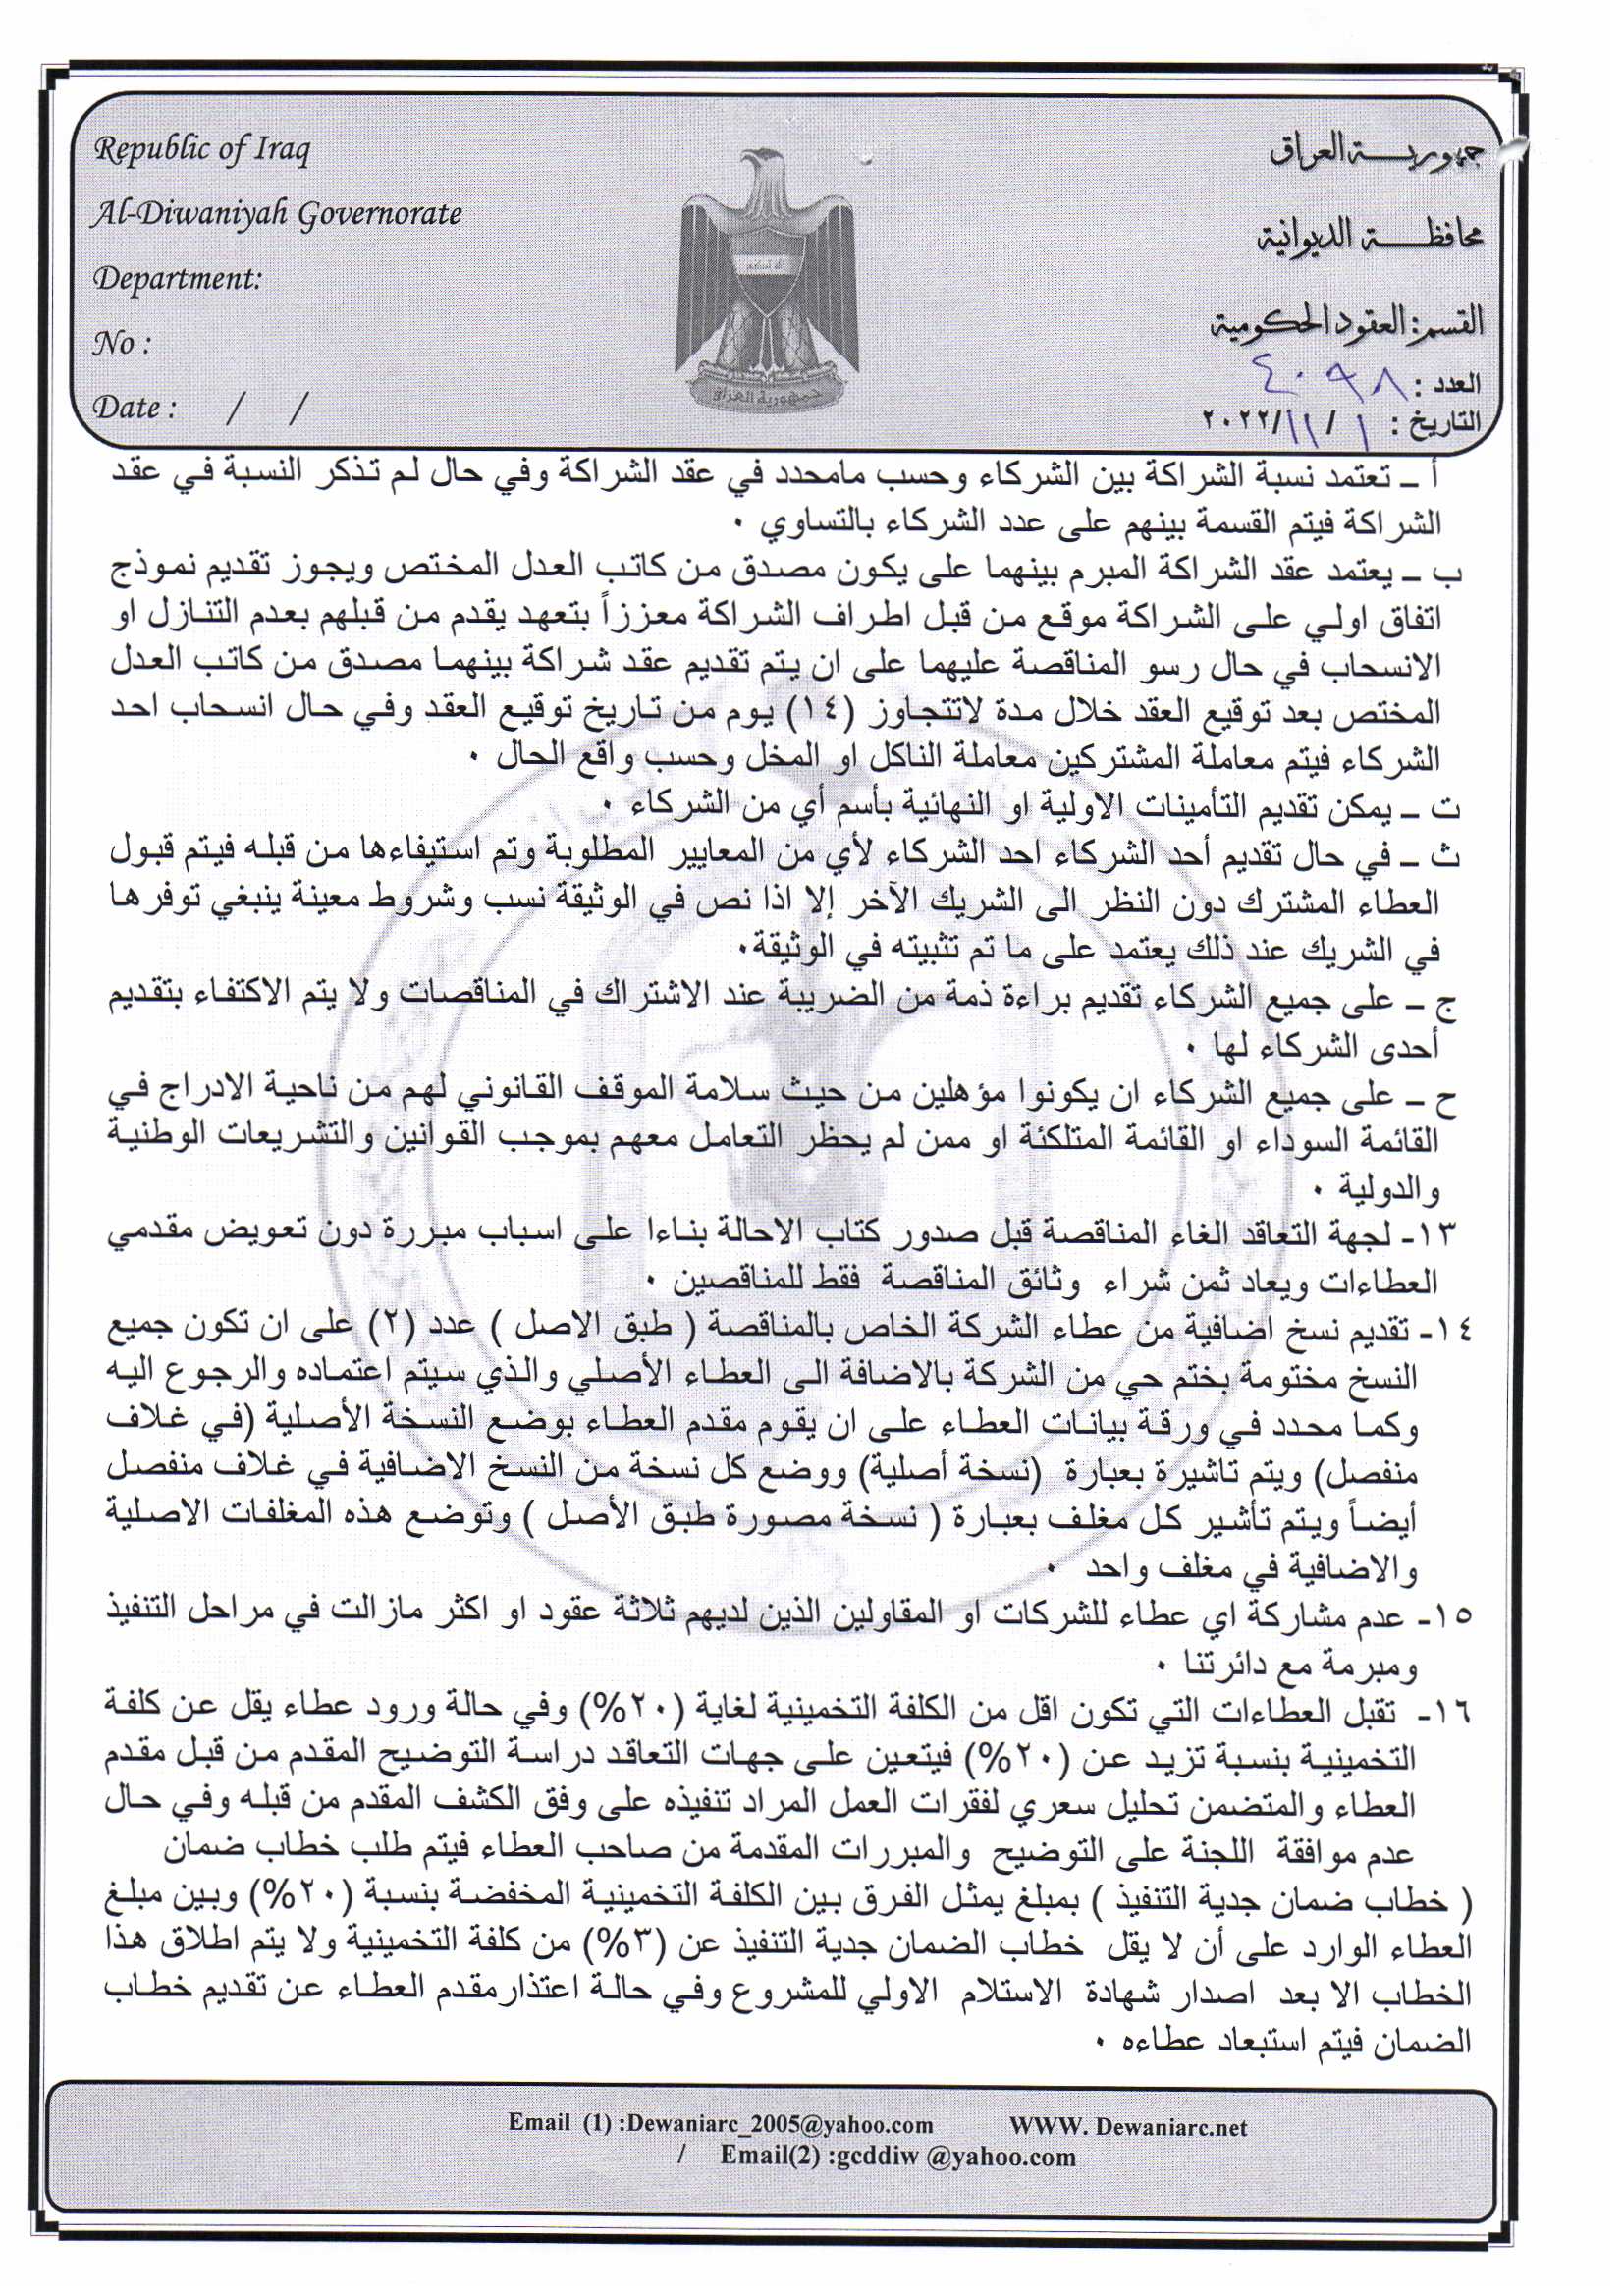 Republic of Iraq
Al-Diwaniyah Governorate
Department:
No :
Date : / /
جمهورية العراق
محافظة الديوانية
القسم: العقود الحكومية
العدد : ٤٠٩٨
التاريخ : ١ / ١١/ ٢٠٢٢
جمهورية العراق
أ ــ تعتمد نسبة الشراكة بين الشركاء وحسب مامحدد في عقد الشراكة وفي حال لم تذكر النسبة في عقد
الشراكة فيتم القسمة بينهم على عدد الشركاء بالتساوي ٠
ب ــ يعتمد عقد الشراكة المبرم بينهما على يكون مصدق من كاتب العدل المختص ويجوز تقديم نموذج
اتفاق اولي على الشراكة موقع من قبل اطراف الشراكة معززاً بتعهد يقدم من قبلهم بعدم التنازل او
الانسحاب في حال رسو المناقصة عليهما على ان يتم تقديم عقد شراكة بينهما مصدق من كاتب العدل
المختص بعد توقيع العقد خلال مدة لاتتجاوز (١٤) يوم من تاريخ توقيع العقد وفي حال انسحاب احد
الشركاء فيتم معاملة المشتركين معاملة الناكل او المخل وحسب واقع الحال ٠
ت ــ يمكن تقديم التأمينات الاولية او النهائية بأسم أي من الشركاء ٠
ث ــ في حال تقديم أحد الشركاء احد الشركاء لأي من المعايير المطلوبة وتم استيفاءها من قبله فيتم قبول
العطاء المشترك دون النظر الى الشريك الآخر إلا اذا نص في الوثيقة نسب وشروط معينة ينبغي توفرها
في الشريك عند ذلك يعتمد على ما تم تثبيته في الوثيقة٠
ج ــ على جميع الشركاء تقديم براءة ذمة من الضريبة عند الاشتراك في المناقصات ولا يتم الاكتفاء بتقديم
أحدى الشركاء لها ٠
ح ــ على جميع الشركاء ان يكونوا مؤهلين من حيث سلامة الموقف القانوني لهم من ناحية الادراج في
القائمة السوداء او القائمة المتلكئة او ممن لم يحظر التعامل معهم بموجب القوانين والتشريعات الوطنية
والدولية ٠
١٣- لجهة التعاقد الغاء المناقصة قبل صدور كتاب الاحالة بناءا على اسباب مبررة دون تعويض مقدمي
العطاءات ويعاد ثمن شراء وثائق المناقصة فقط للمناقصين ٠
١٤- تقديم نسخ اضافية من عطاء الشركة الخاص بالمناقصة ( طبق الاصل ) عدد (٢) على ان تكون جميع
النسخ مختومة بختم حي من الشركة بالاضافة الى العطاء الأصلي والذي سيتم اعتماده والرجوع اليه
وكما محدد في ورقة بيانات العطاء على ان يقوم مقدم العطاء بوضع النسخة الأصلية (في غلاف
منفصل) ويتم تاشيرة بعبارة (نسخة أصلية) ووضع كل نسخة من النسخ الاضافية في غلاف منفصل
أيضاً ويتم تأشير كل مغلف بعبارة ( نسخة مصورة طبق الأصل ) وتوضع هذه المغلفات الاصلية
والاضافية في مغلف واحد ٠
١٥- عدم مشاركة اي عطاء للشركات او المقاولين الذين لديهم ثلاثة عقود او اكثر مازالت في مراحل التنفيذ
ومبرمة مع دائرتنا ٠
١٦- تقبل العطاءات التي تكون اقل من الكلفة التخمينية لغاية (٢٠%) وفي حالة ورود عطاء يقل عن كلفة
التخمينية بنسبة تزيد عن (٢٠%) فيتعين على جهات التعاقد دراسة التوضيح المقدم من قبل مقدم
العطاء والمتضمن تحليل سعري لفقرات العمل المراد تنفيذه على وفق الكشف المقدم من قبله وفي حال
عدم موافقة اللجنة على التوضيح والمبررات المقدمة من صاحب العطاء فيتم طلب خطاب ضمان
( خطاب ضمان جدية التنفيذ ) بمبلغ يمثل الفرق بين الكلفة التخمينية المخفضة بنسبة (٢٠%) وبين مبلغ
العطاء الوارد على أن لا يقل خطاب الضمان جدية التنفيذ عن (٣%) من كلفة التخمينية ولا يتم اطلاق هذا
الخطاب الا بعد اصدار شهادة الاستلام الاولي للمشروع وفي حالة اعتذارمقدم العطاء عن تقديم خطاب
الضمان فيتم استبعاد عطاءه ٠
Email (1) :Dewaniarc_2005@yahoo.com WWW. Dewaniarc.net
/ Email(2) :gcddiw @yahoo.com